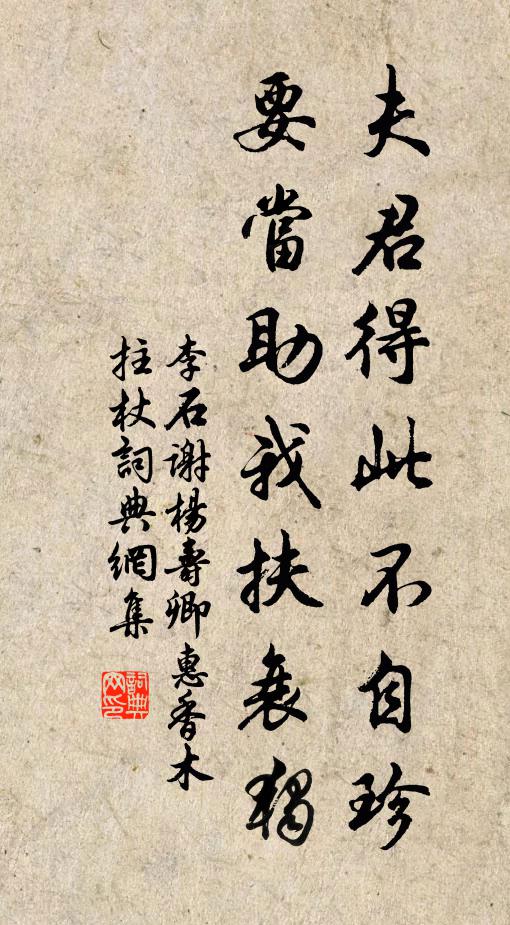 夫君得此不自珍
要當助我扶衰獨
李石謝楊壽卿惠香木
拄杖詞典網集
詞典網印